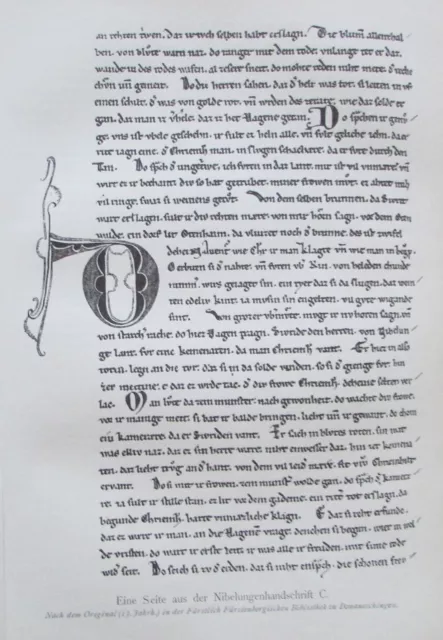 an rehten triwen, daz ir iuch selben habt erslagn. Die blumn allenthal
ben, von blůte warn naz. do ranger mit dem tode, unlange tet er daz,
wande in des todes wafen, al zesere sneit. do mohte reden niht mere, d' reche
chůn uñ gemeit. Do die herren sahen, daz d' helt was tot, si leiten in uf
einen schilt, d' was von golde rot, uñ wrden des ze rate, wie daz solde er
gan, daz man iz verhele, daz iz het Hagene getan. Do sprachen ir genů
ge, uns ist ubele geschehn. ir sult ez heln alle, uñ sult geliche iehn, da er
rite iagn eine, d' Chriemh man, in slugen schachære, da er fuere durch den
tan. Do sprach d' ungetriwe, ich fůren in daz lant, mir ist vil unmære, uñ
wirt ez ir bechant, die so hat getrubet, miner frowen můt, ez ahtet mich
vil ringe, swaz si weinens getůt. Von dem selben brunnen, da Sivrit
wart erslagn, sult ir diu rehten mære, von mir hôren sagn, vor dem Oten
walde, ein dorf lit Otenhaim, da vliuzet noch d' brunne, des ist zwifel
dehein.
Geturn si d' naht, uñ fůren ub' Rin, von heleden chunde
nimmer, wirs geiaget sin. ein tyer daz si da slugen, daz wein
ten edeliu kint, ia můsin sin engelten, vil gůter wigande
sint. Von grozer ubermůte, mugt ir nu horen sagn, uñ
von starcher rache, do hiez Hagen tragn, Sivride den herren, von Nibelun
ge lant, fur eine kemenaten, da man Chriemh vant. Er hiez in also
toten, legn an die tur, daz si in da solde vinden, so si d' gienge fur, hin
zer mettine, e daz ez wrde tac, d' diu frowe Chriemh, deheine selten ver
lac. Man lůte da zem munster, nach gewonheit,
ein kamerere, da er Sivriden vant. Er sach in blutes roten, sin wat
was elliu naz, daz ez sin herre wære, niht enwesser daz, hin zer kemena
ten, daz lieht trůg an d' hant, von dem vil leidiu mære, sit vrů Chriemhilt
ervant. Do si mit ir frowen, zem munster wolde gan, do sprach d' kamere
re, ia sult ir stille stan, ez lit vor dem gademe, ein riter tot erslagn, do
begunde Chriemh, harte unmæzliche klagn. E daz si rehte erfunde,
daz ez wære ir man, an die Hagenen vrage, denchen si began, wier in wol
de vristen, do wart ir erste leit, ir was alle ir freuden, mit sime tode
wid'seit.
Eine Seite aus der Nibelungenhandschrift C.
Nach dem Original (13. Jahrh.) in der Fürstlich Fürstenbergischen Bibliothek zu Donaueschingen.